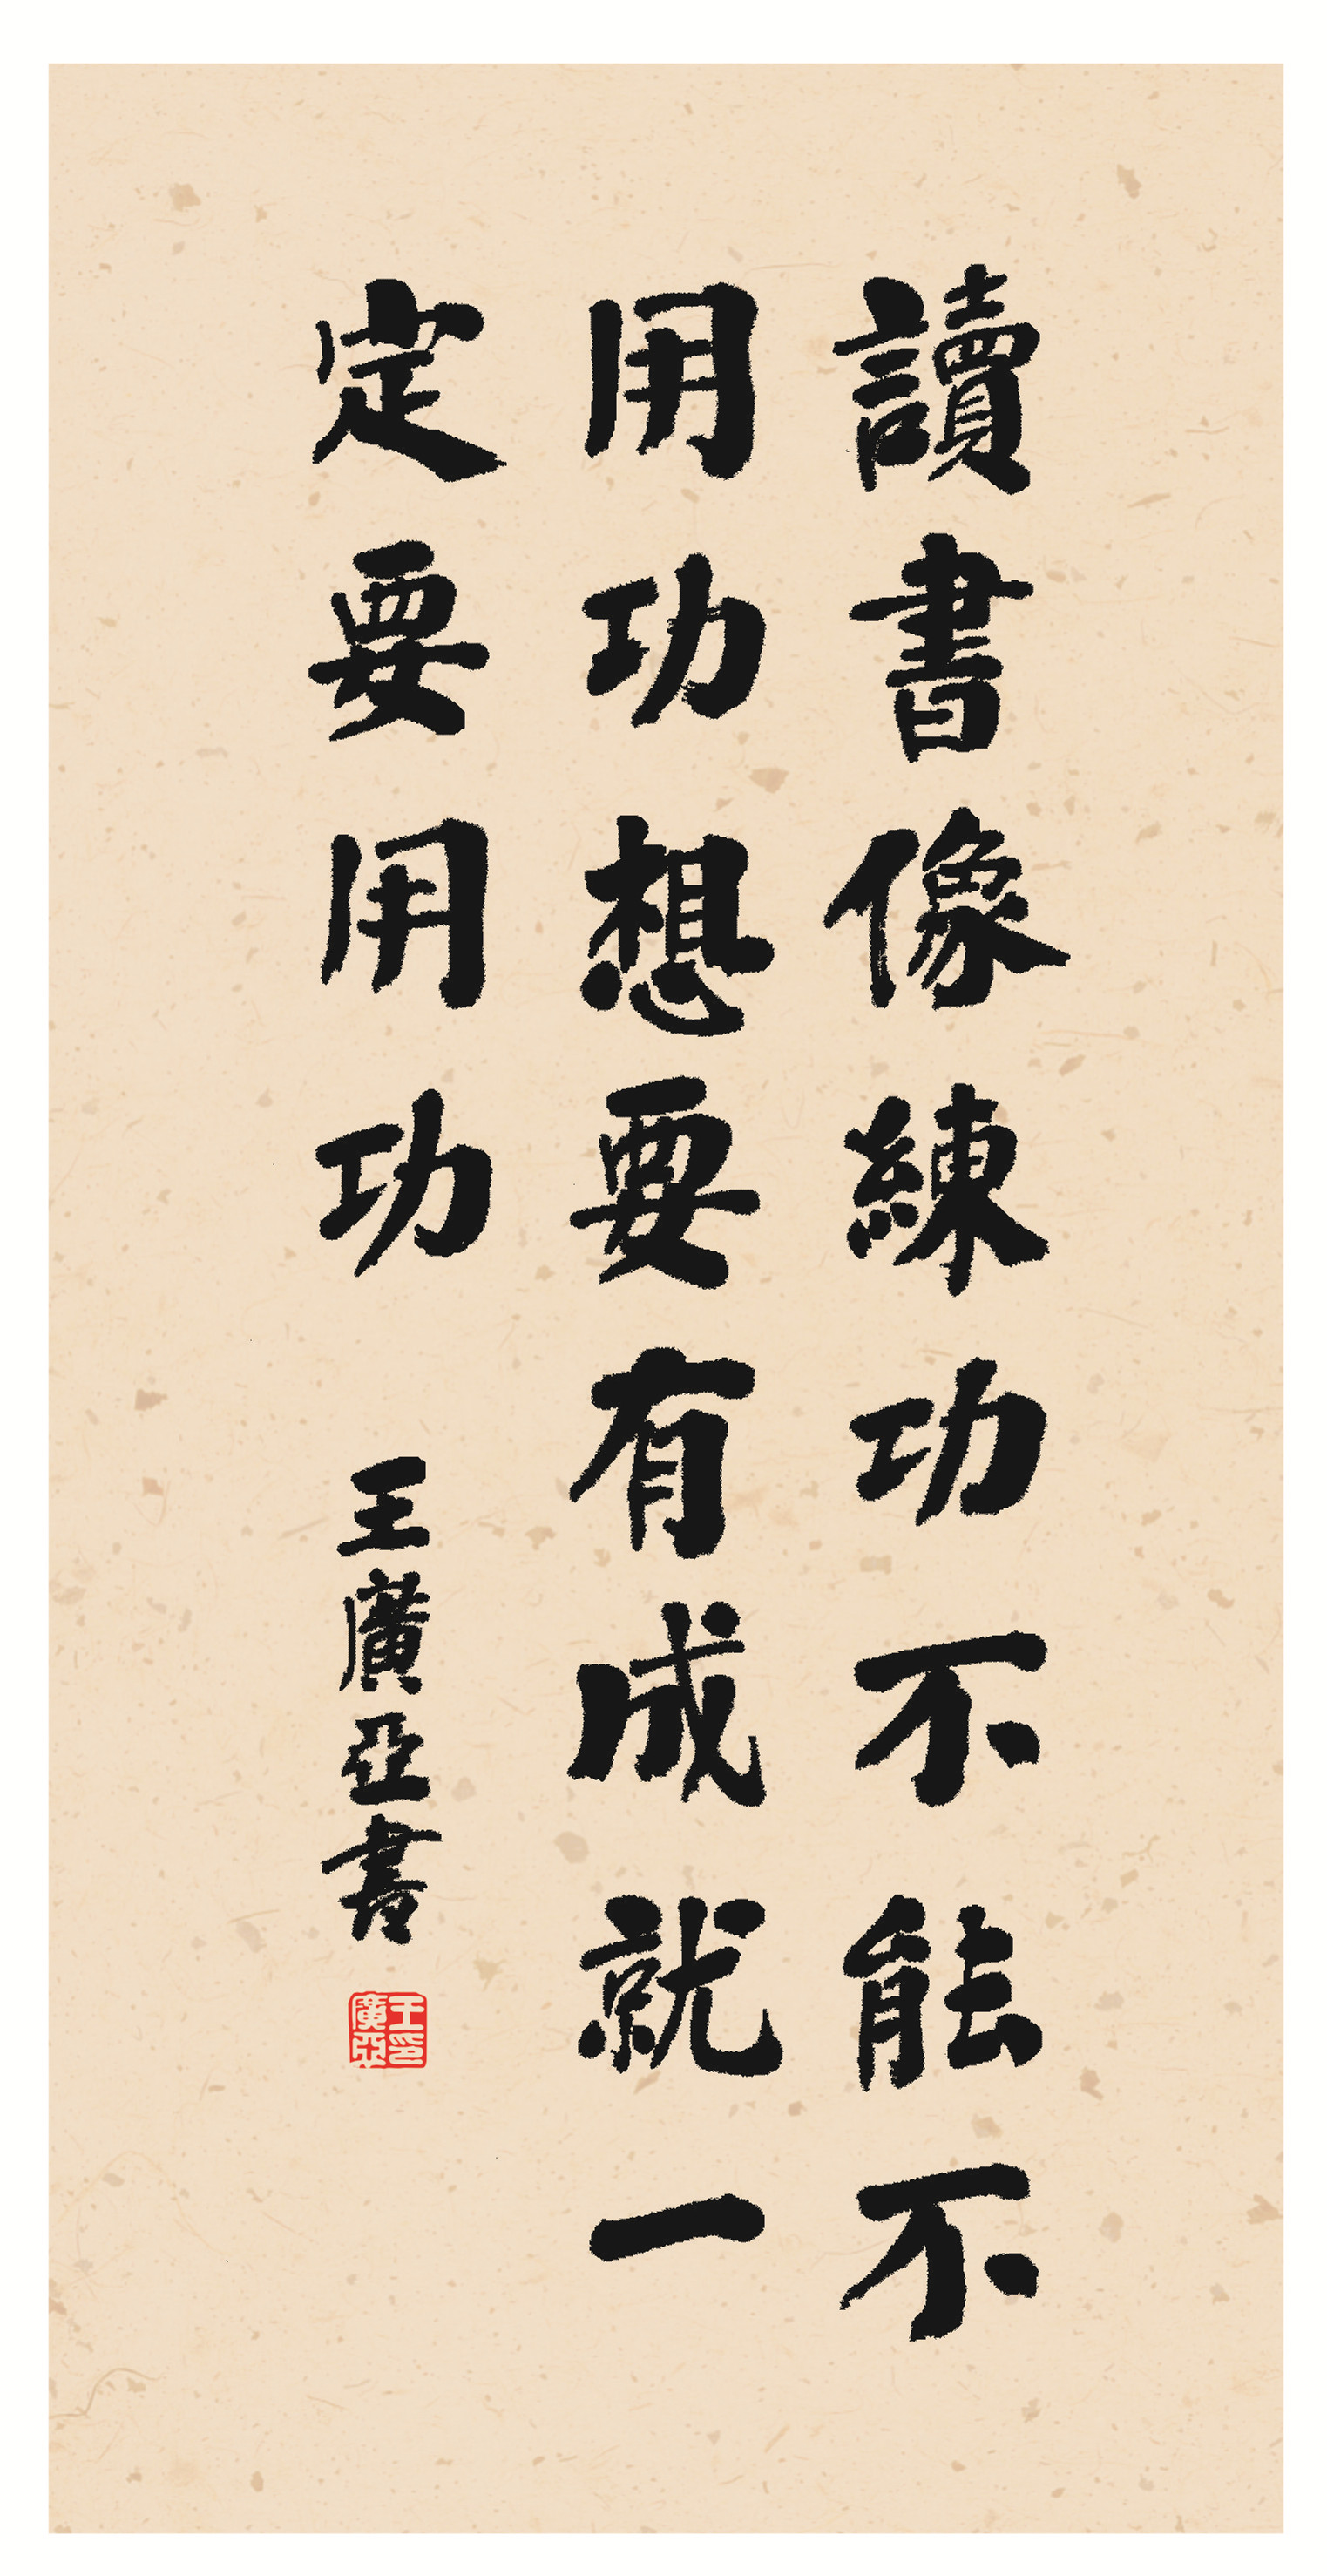 讀書像練功不能不
用功想要有成就一
定要用功
王廣亞書
王印
廣亞